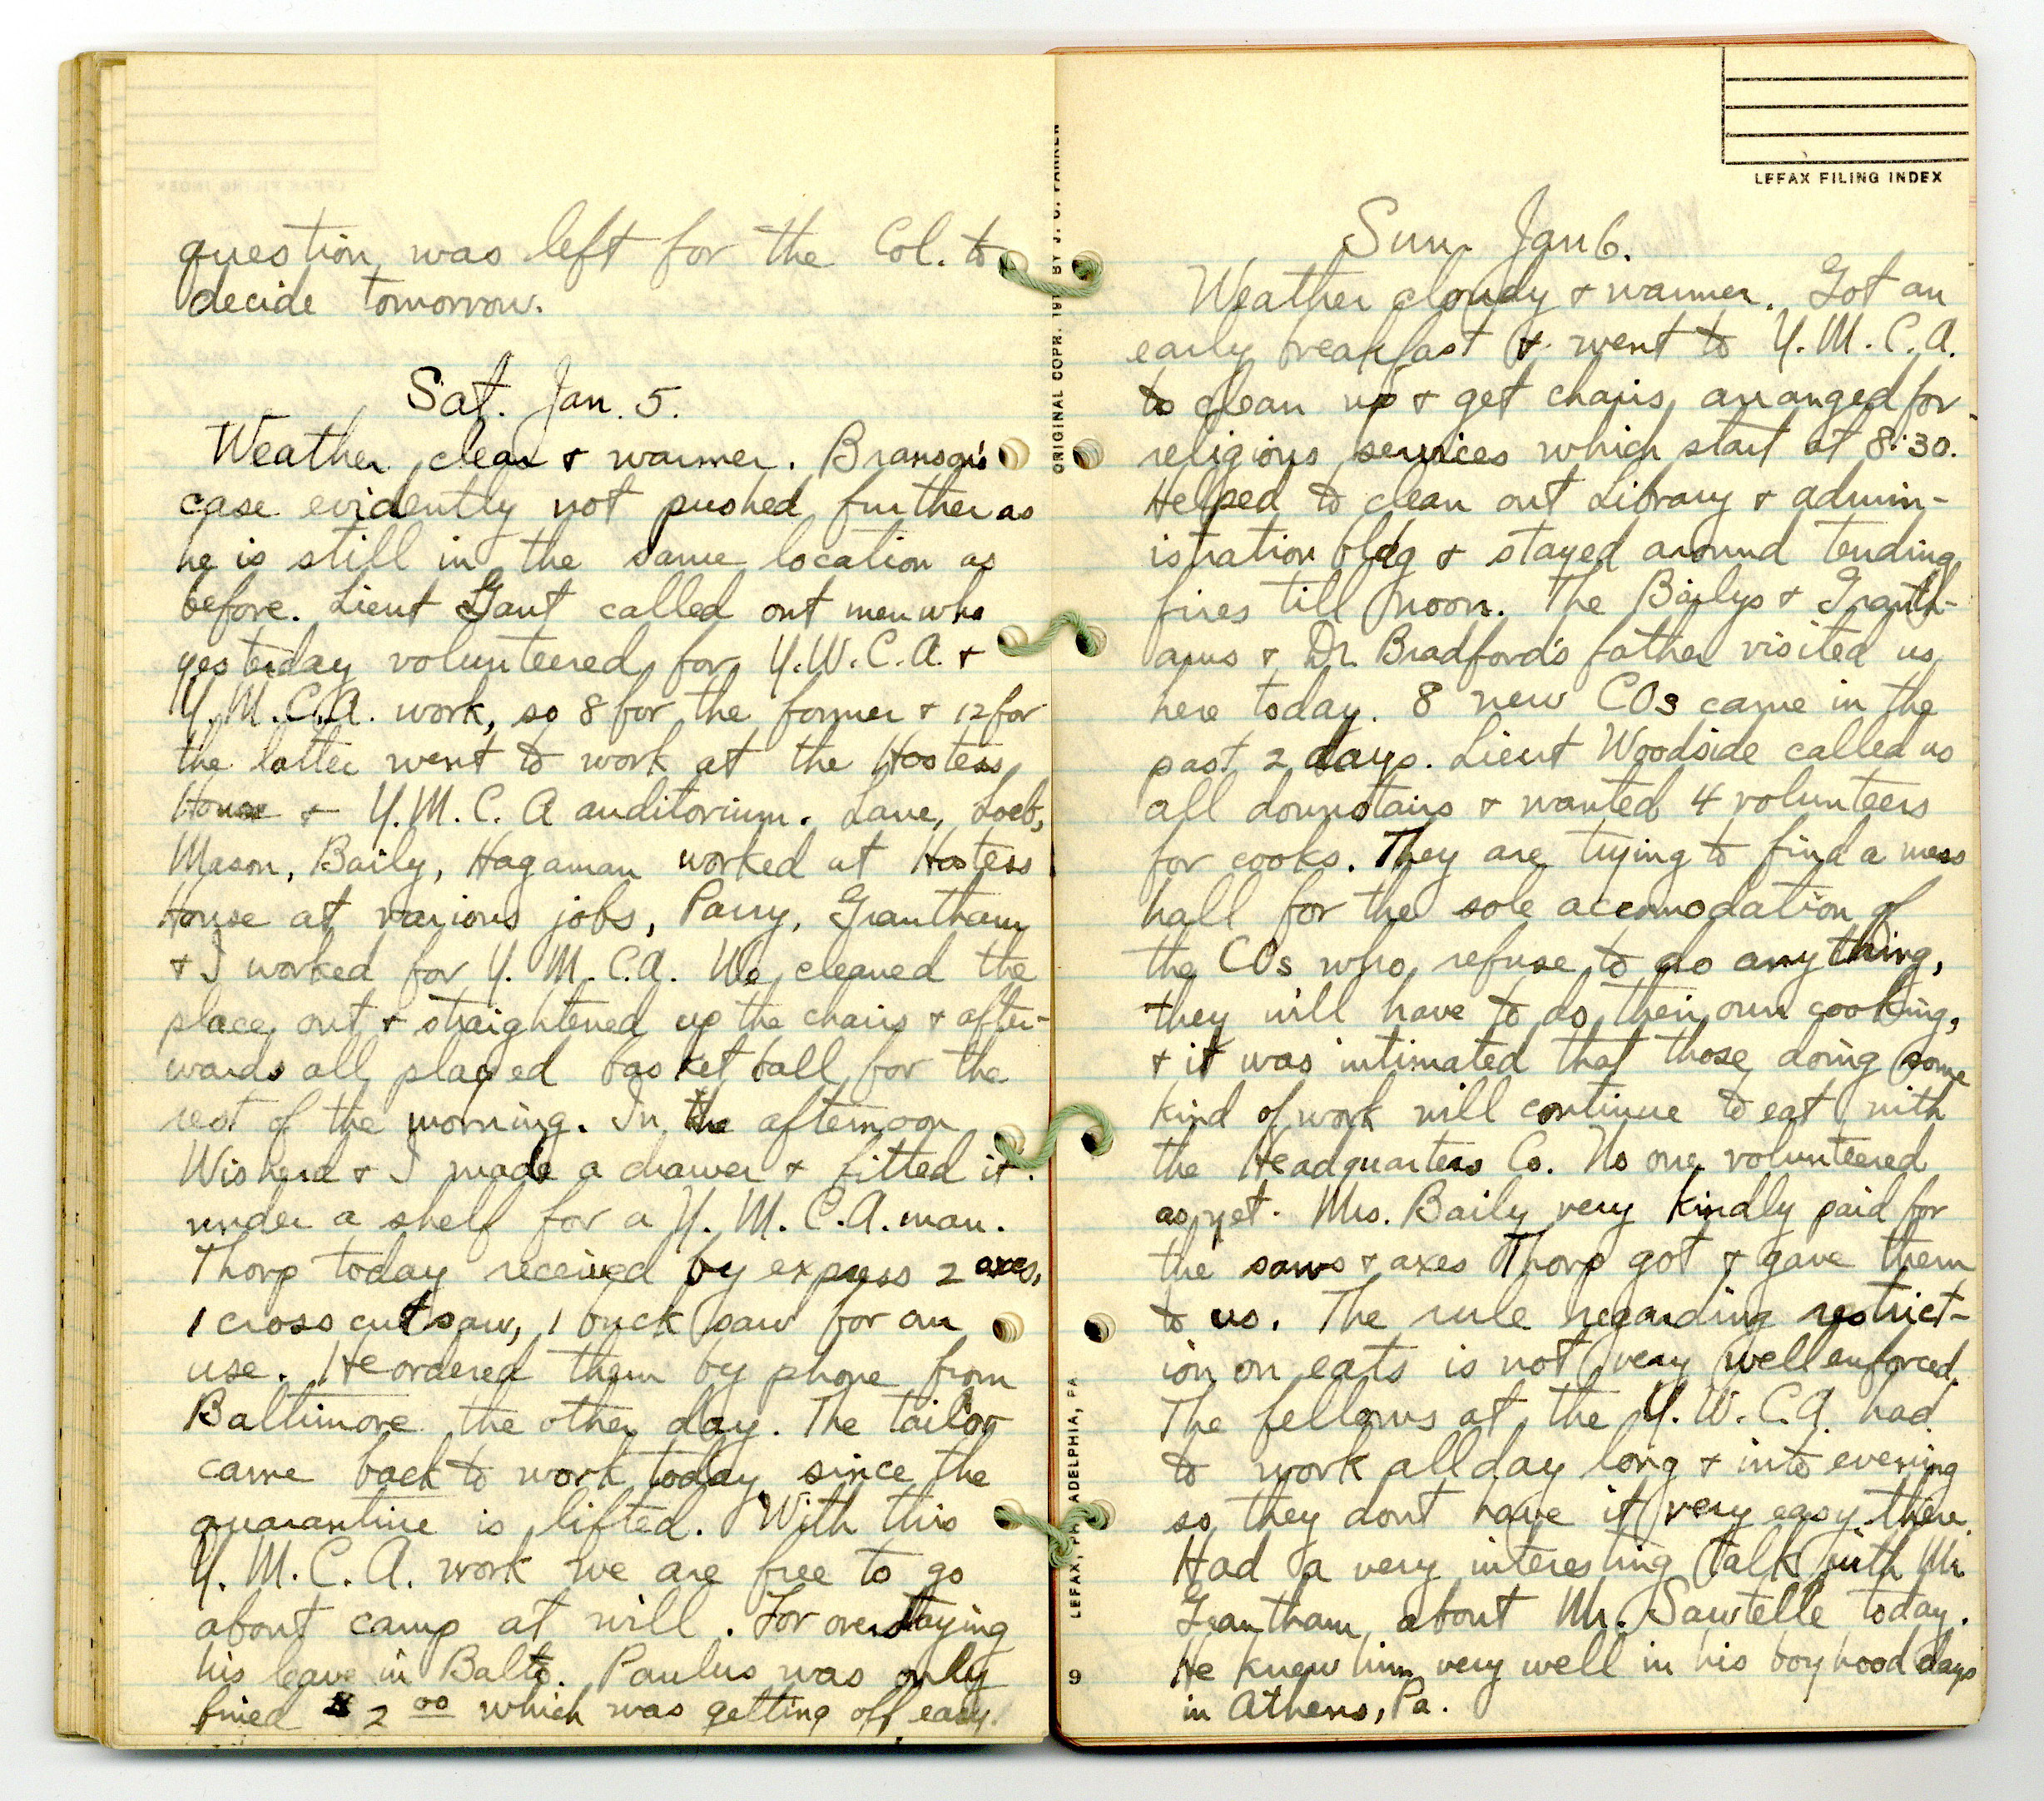 question was left for the Col. to
decide tomorrow.
Sat. Jan. 5.
Weather clear & warmer. Branson's
case evidently not pushed further as
he is still in the same location as
before. Lieut Gant called out men who
yesterday volunteered for Y.W.C.A. &
Y.M.C.A. work, so 8 for the former & 12 for
the latter went to work at the Hostess
House & Y.M.C.A auditorium. Lane, Loeb,
Mason, Baily, Hagaman worked at Hostess
House at various jobs, Parry, Grantham
& I worked for Y.M.C.A. We cleaned the
place out & straightened up the chairs & after-
wards all played basket ball for the
rest of the morning. In the afternoon
Wisherd & I made a drawer & fitted it
under a shelf for a Y.M.C.A. man.
Thorp today received by express 2 axes,
1 cross cut saw, 1 buck saw for our
use. He ordered them by phone from
Baltimore the other day. The tailor
came back to work today since the
quarantine is lifted. With this
Y.M.C.A. work we are free to go
about camp at will. For overstaying
his leave in Balto. Paulus was only
fined $2 00 which was getting off easy.
ORIGINAL COPR. 191 BY J. C. PARKER
LEFAX FILING INDEX
Sun. Jan 6.
Weather cloudy & warmer. Got an
early breakfast & went to Y.M.C.A.
to clean up & get chairs arranged for
religious services which start at 8:30.
Helped to clean out Library & admin-
istration bldg & stayed around tending
fires till noon. The Bailys & Granth-
ams & Dr. Bradford's father visited us
here today. 8 new COs came in the
past 2 days. Lieut Woodside called us
all downstairs & wanted 4 volunteers
for cooks. They are trying to find a mess
hall for the sole accomodation of
the COs who refuse to do anything,
they will have to do their own cooking,
& it was intimated that those doing some
kind of work will continue to eat with
the Headquarters Co. No one volunteered
as yet. Mrs. Baily very kindly paid for
the saws & axes Thorp got & gave them
to us. The rule regarding restrict-
ion on eats is not very well enforced.
The fellows at the Y.W.C.A. had
to work all day long & into evening
so they dont have it very easy there.
Had a very interesting talk with Mr.
Grantham about Mr. Sawtelle today.
He knew him very well in his boyhood days
in Athens, Pa.
LEFAX, PHILADELPHIA, PA
9